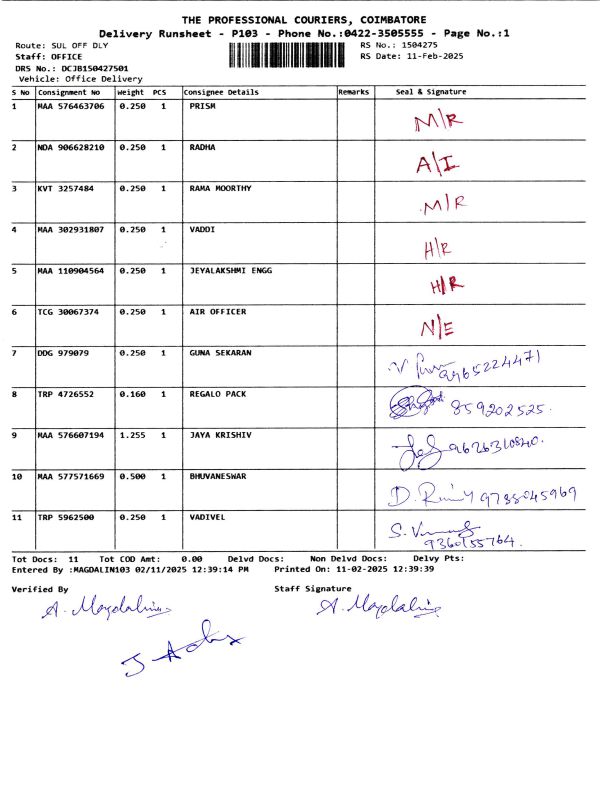 THE PROFESSIONAL COURIERS, COIMBATORE
Delivery Runsheet - P103 - Phone No.:0422-3505555 - Page No.:1
Route: SUL OFF DLY RS No.: 1504275
Staff: OFFICE RS Date: 11-Feb-2025
DRS No.: DCJB150427501
Vehicle: Office Delivery
S No Consignment No Weight PCS Consignee Details Remarks Seal & Signature
1 MAA 576463706 0.250 1 PRISM M/R
2 NDA 906628210 0.250 1 RADHA A/I
3 KVT 3257484 0.250 1 RAMA MOORTHY M/R
4 MAA 302931807 0.250 1 VADDI H/R
5 MAA 110904564 0.250 1 JEYALAKSHMI ENGG H/R
6 TCG 30067374 0.250 1 AIR OFFICER N/E
7 DDG 979079 0.250 1 GUNA SEKARAN
8 TRP 4726552 0.160 1 REGALO PACK 859202525.
9 MAA 576607194 1.255 1 JAYA KRISHIV
10 MAA 577571669 0.500 1 BHUVANESWAR
11 TRP 5962500 0.250 1 VADIVEL 9360155764.
Tot Docs: 11 Tot COD Amt: 0.00 Delvd Docs: Non Delvd Docs: Delvy Pts:
Entered By :MAGDALIN103 02/11/2025 12:39:14 PM Printed On: 11-02-2025 12:39:39
Verified By Staff Signature
A. Magdalin A. Magdalin